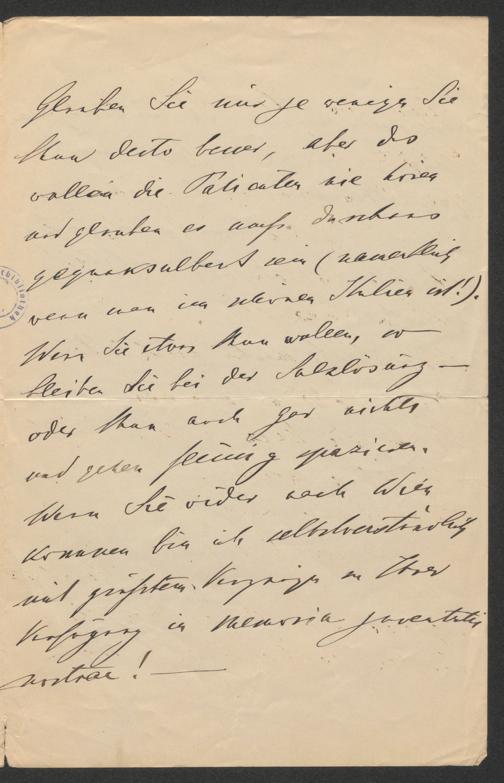 Glauben Sie mir je weniger Sie
thun desto besser, aber das
wollen die Patienten nie hören
und glauben es muss durchaus
gequacksalbert sein (namentlich
wenn man im schönen Italien ist!).
Wenn Sie etwas thun wollen, so
bleiben Sie bei der Salzlösung —
oder thun auch gar nichts
und gehen fleissig spazieren.
Wenn Sie wider nach Wien
kommen bin ich selbstverständlich
mit grösstem Vergnügen zu Ihrer
Verfügung in memoriam juventutis
nostrae! —